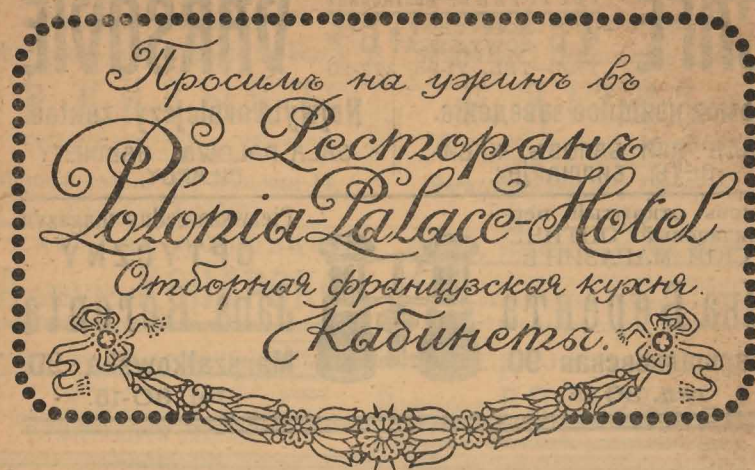 Просимъ на ужинъ въ
Ресторанъ
Polonia-Palace-Hotel
Отборная французская кухня.
Кабинеты.